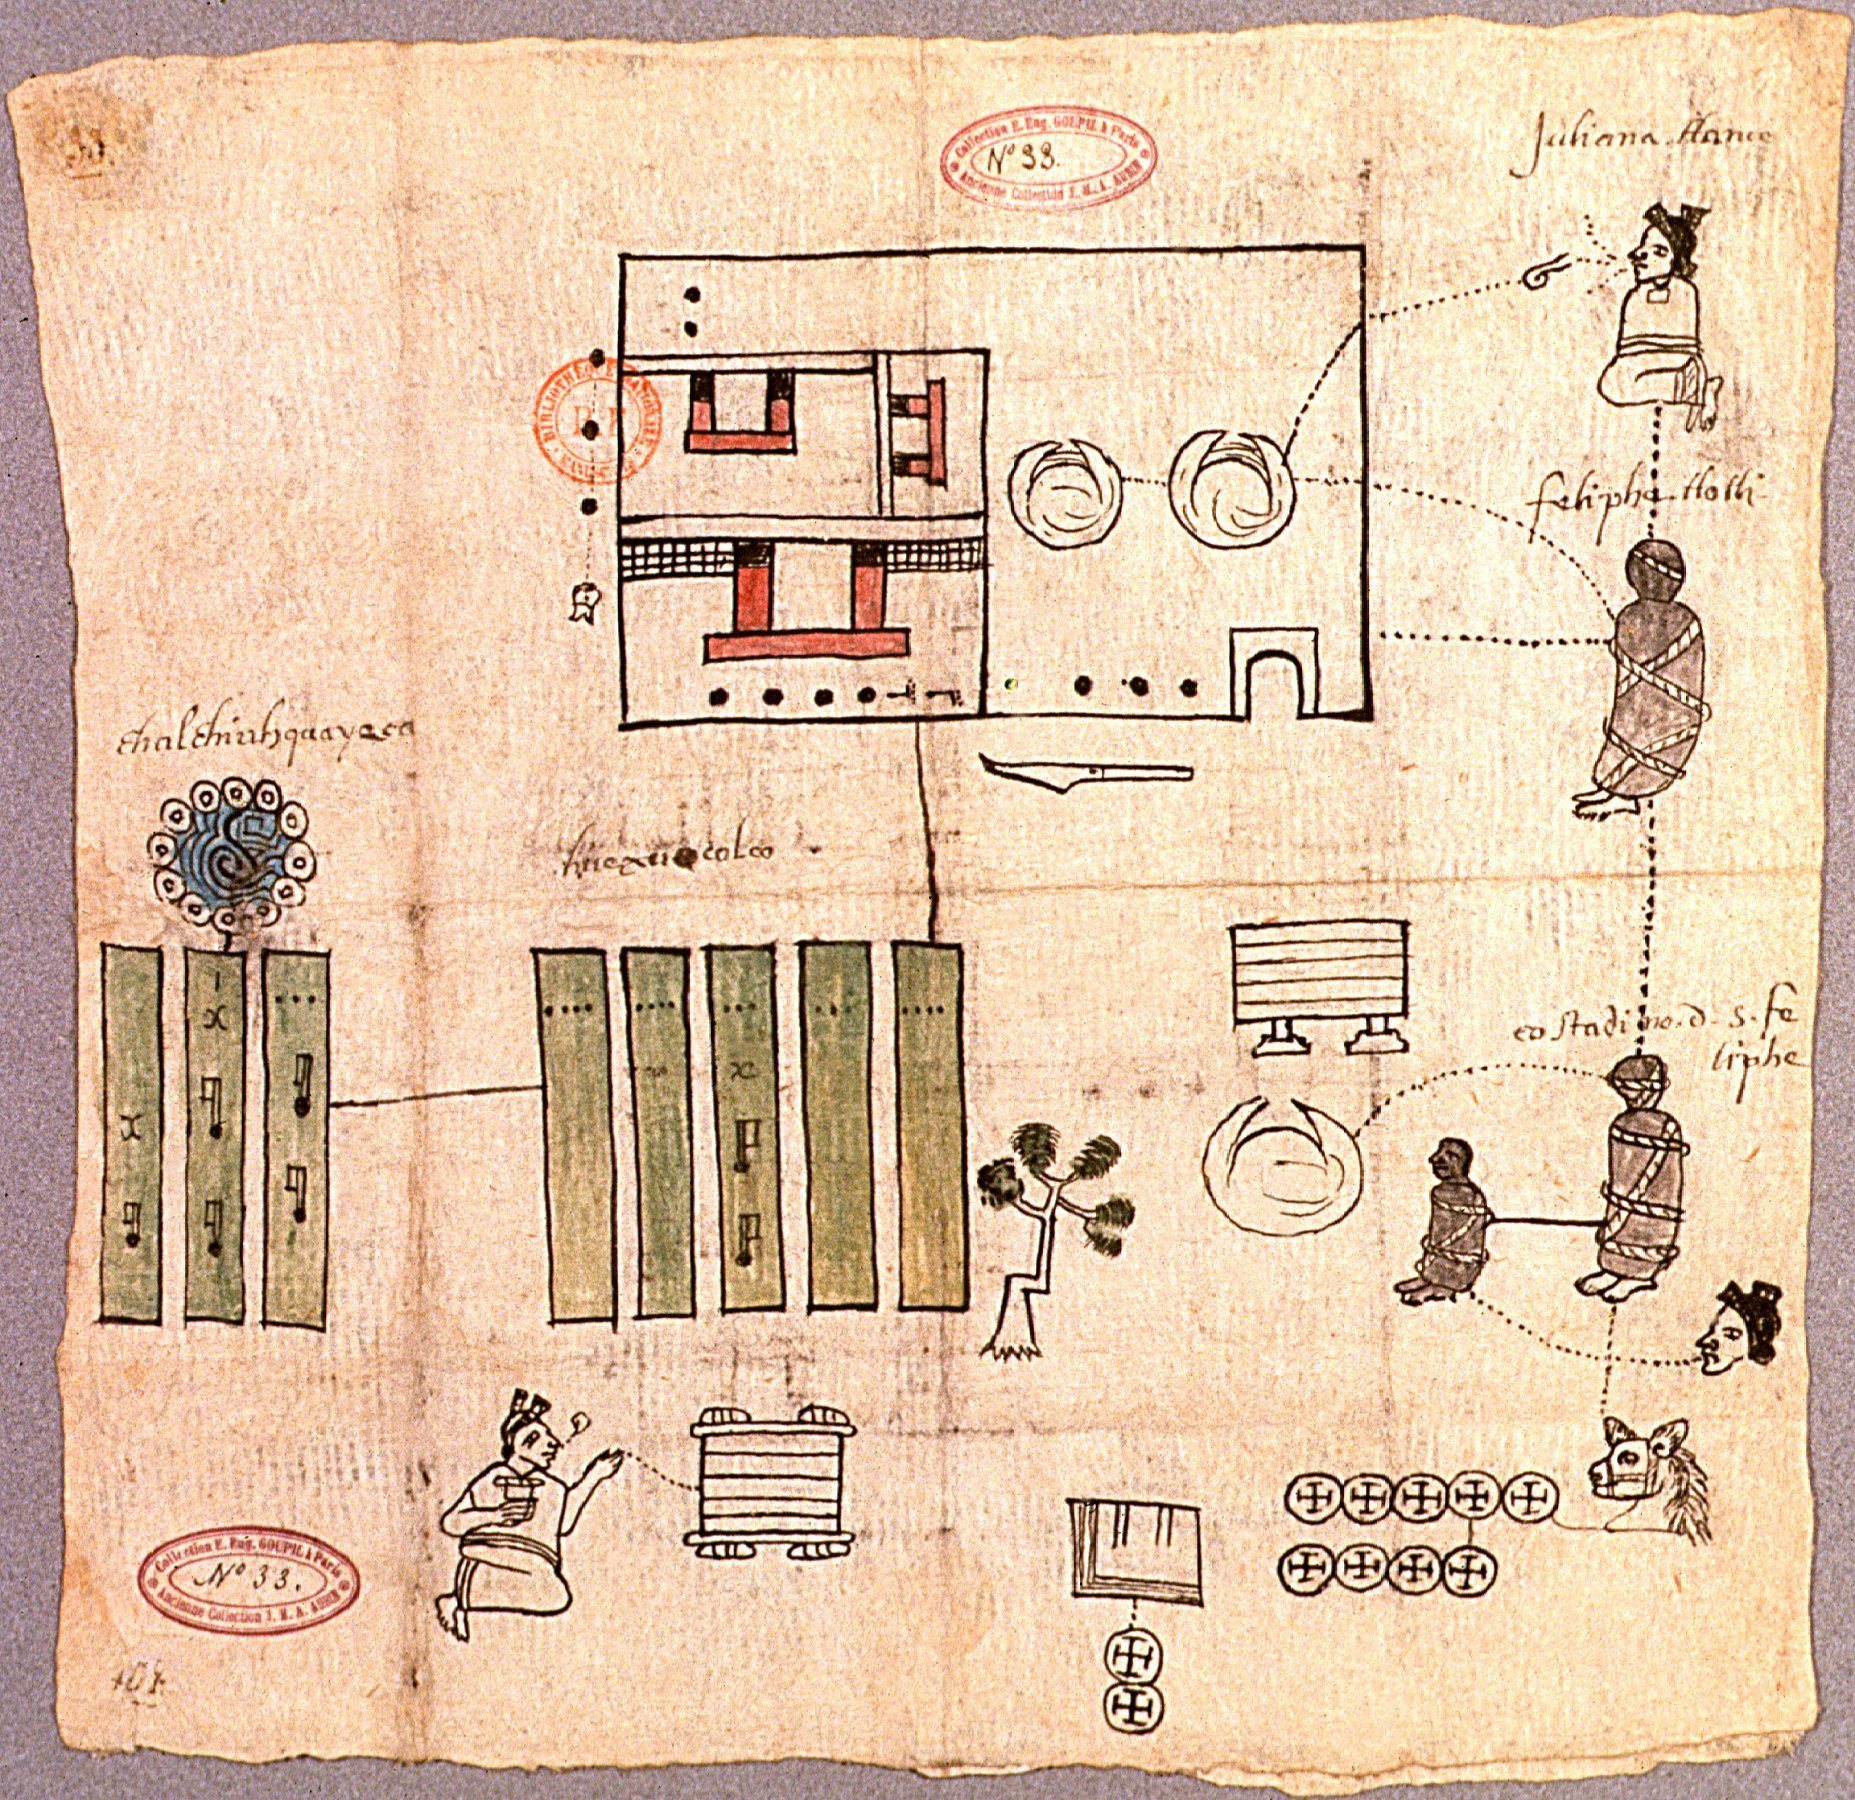 Collection E. Eug. GOUPIL à Paris
Nº 33.
Ancienne Collection J. M. A. AUBIN
Juliana tlanco
feliphe tlotli
chalchiuhquayeca
huexuecolco
costadino. d. s. fe
liphe
Collection E. Eug. GOUPIL à Paris
Nº 33.
Ancienne Collection J. M. A. AUBIN